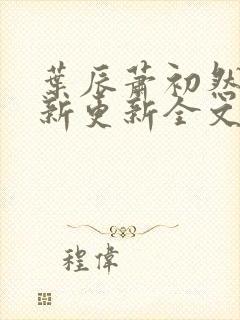 葉辰蕭初然
新更新全文
程偉